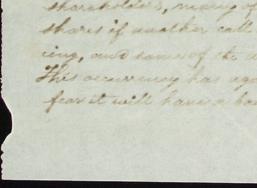 shareholders, many of
shares if another call
ing, and some of the
This occurrency has
fear it will have a